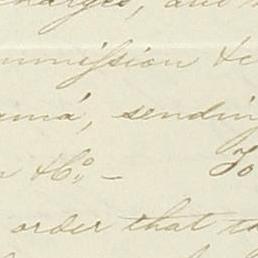 charges, and
mmission &c
ama, sending
& Co. — To
order that t